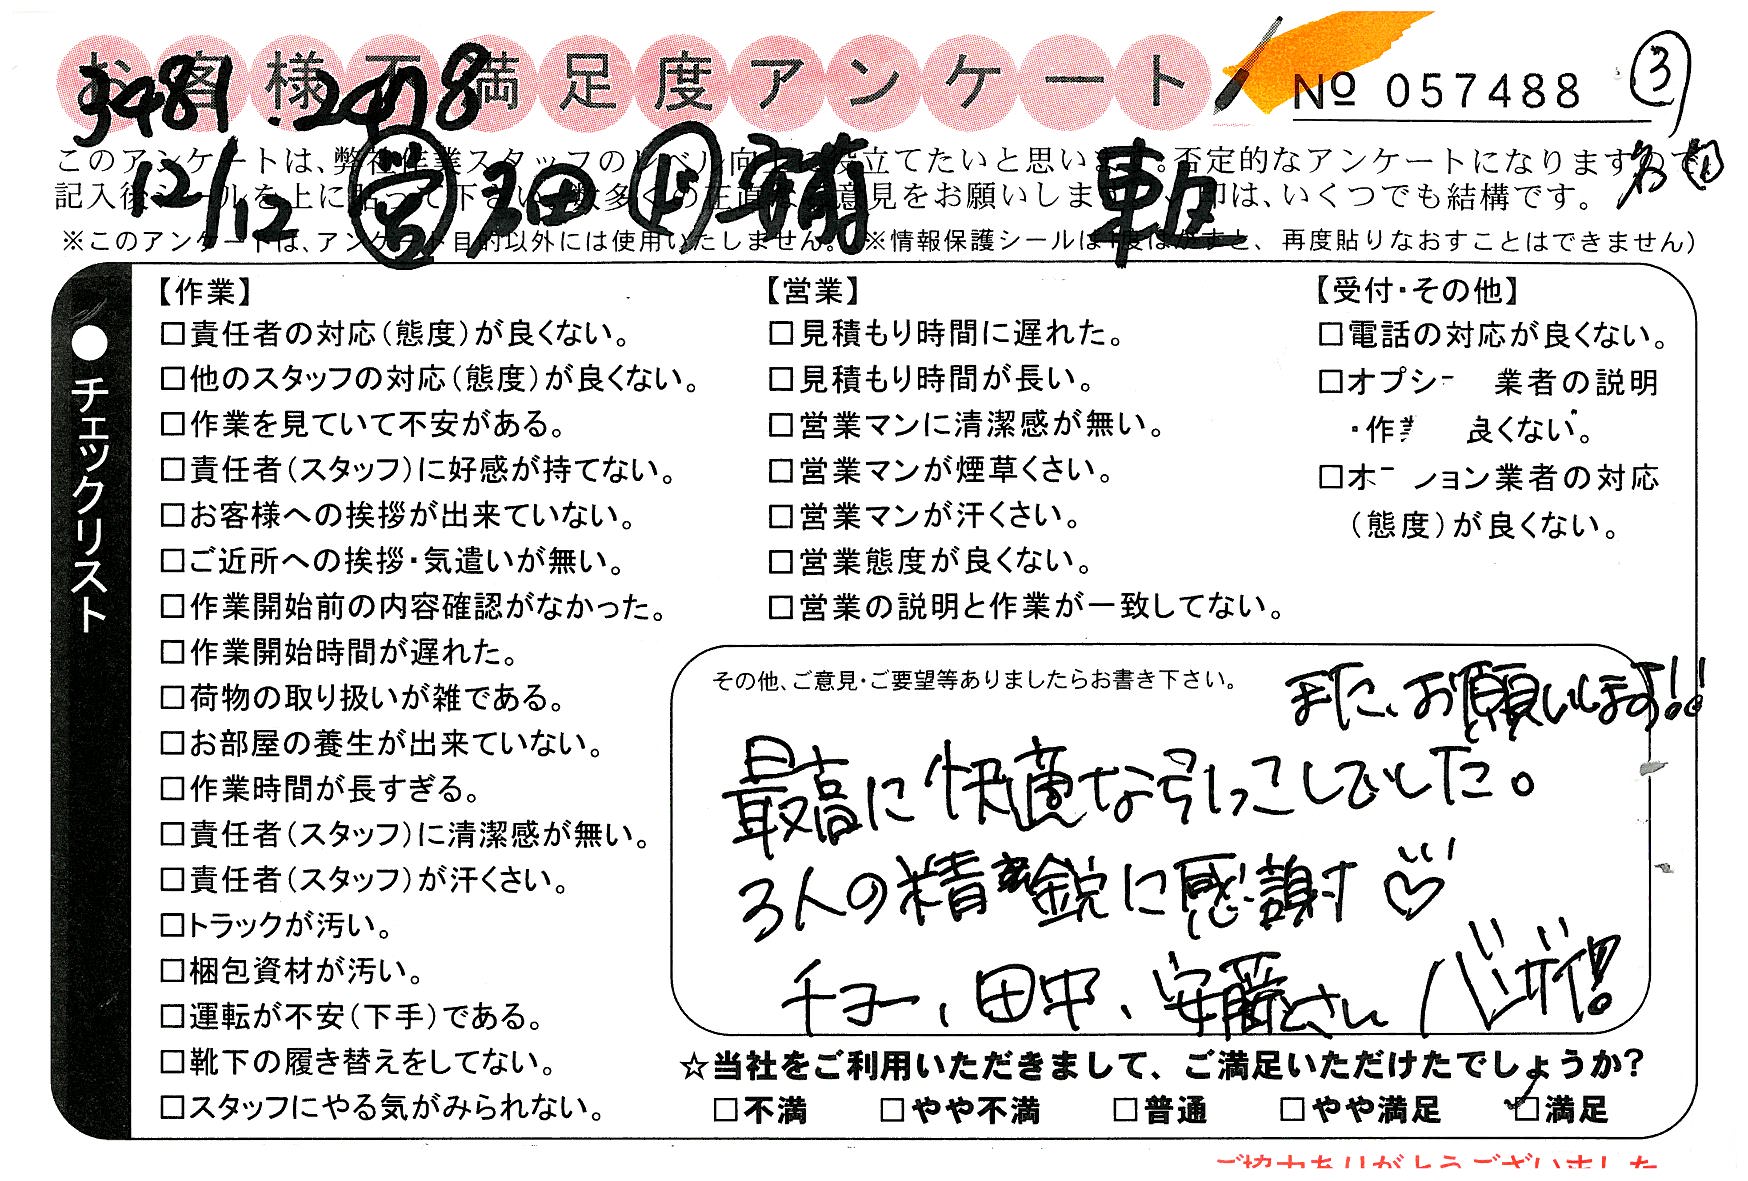 お客様不満足度アンケート
№ 057488
③
3481.2478
このアンケートは、弊社作業スタッフのレベル向上に役立てたいと思います。否定的なアンケートになりますので、
記入後シールを上に貼って下さい。数多くの正直なご意見をお願いします。レ印は、いくつでも結構です。
12/12
※このアンケートは、アンケート目的以外には使用いたしません。(※情報保護シールは1度はがすと、再度貼りなおすことはできません)
●チェックリスト
【作業】
□責任者の対応(態度)が良くない。
□他のスタッフの対応(態度)が良くない。
□作業を見ていて不安がある。
□責任者(スタッフ)に好感が持てない。
□お客様への挨拶が出来ていない。
□ご近所への挨拶・気遣いが無い。
□作業開始前の内容確認がなかった。
□作業開始時間が遅れた。
□荷物の取り扱いが雑である。
□お部屋の養生が出来ていない。
□作業時間が長すぎる。
□責任者(スタッフ)に清潔感が無い。
□責任者(スタッフ)が汗くさい。
□トラックが汚い。
□梱包資材が汚い。
□運転が不安(下手)である。
□靴下の履き替えをしてない。
□スタッフにやる気がみられない。
【営業】
□見積もり時間に遅れた。
□見積もり時間が長い。
□営業マンに清潔感が無い。
□営業マンが煙草くさい。
□営業マンが汗くさい。
□営業態度が良くない。
□営業の説明と作業が一致してない。
【受付・その他】
□電話の対応が良くない。
□オプシー 業者の説明
・作業 良くない。
□オプション業者の対応
(態度)が良くない。
その他、ご意見・ご要望等ありましたらお書き下さい。
また、お願いします!!
最高に快適な引っこしでした。
3人の精鋭に感謝♡
チョー、田中、安藤さん バンザイ!
☆当社をご利用いただきまして、ご満足いただけたでしょうか?
□不満 □やや不満 □普通 □やや満足 ☑満足
ご協力ありがとうございました